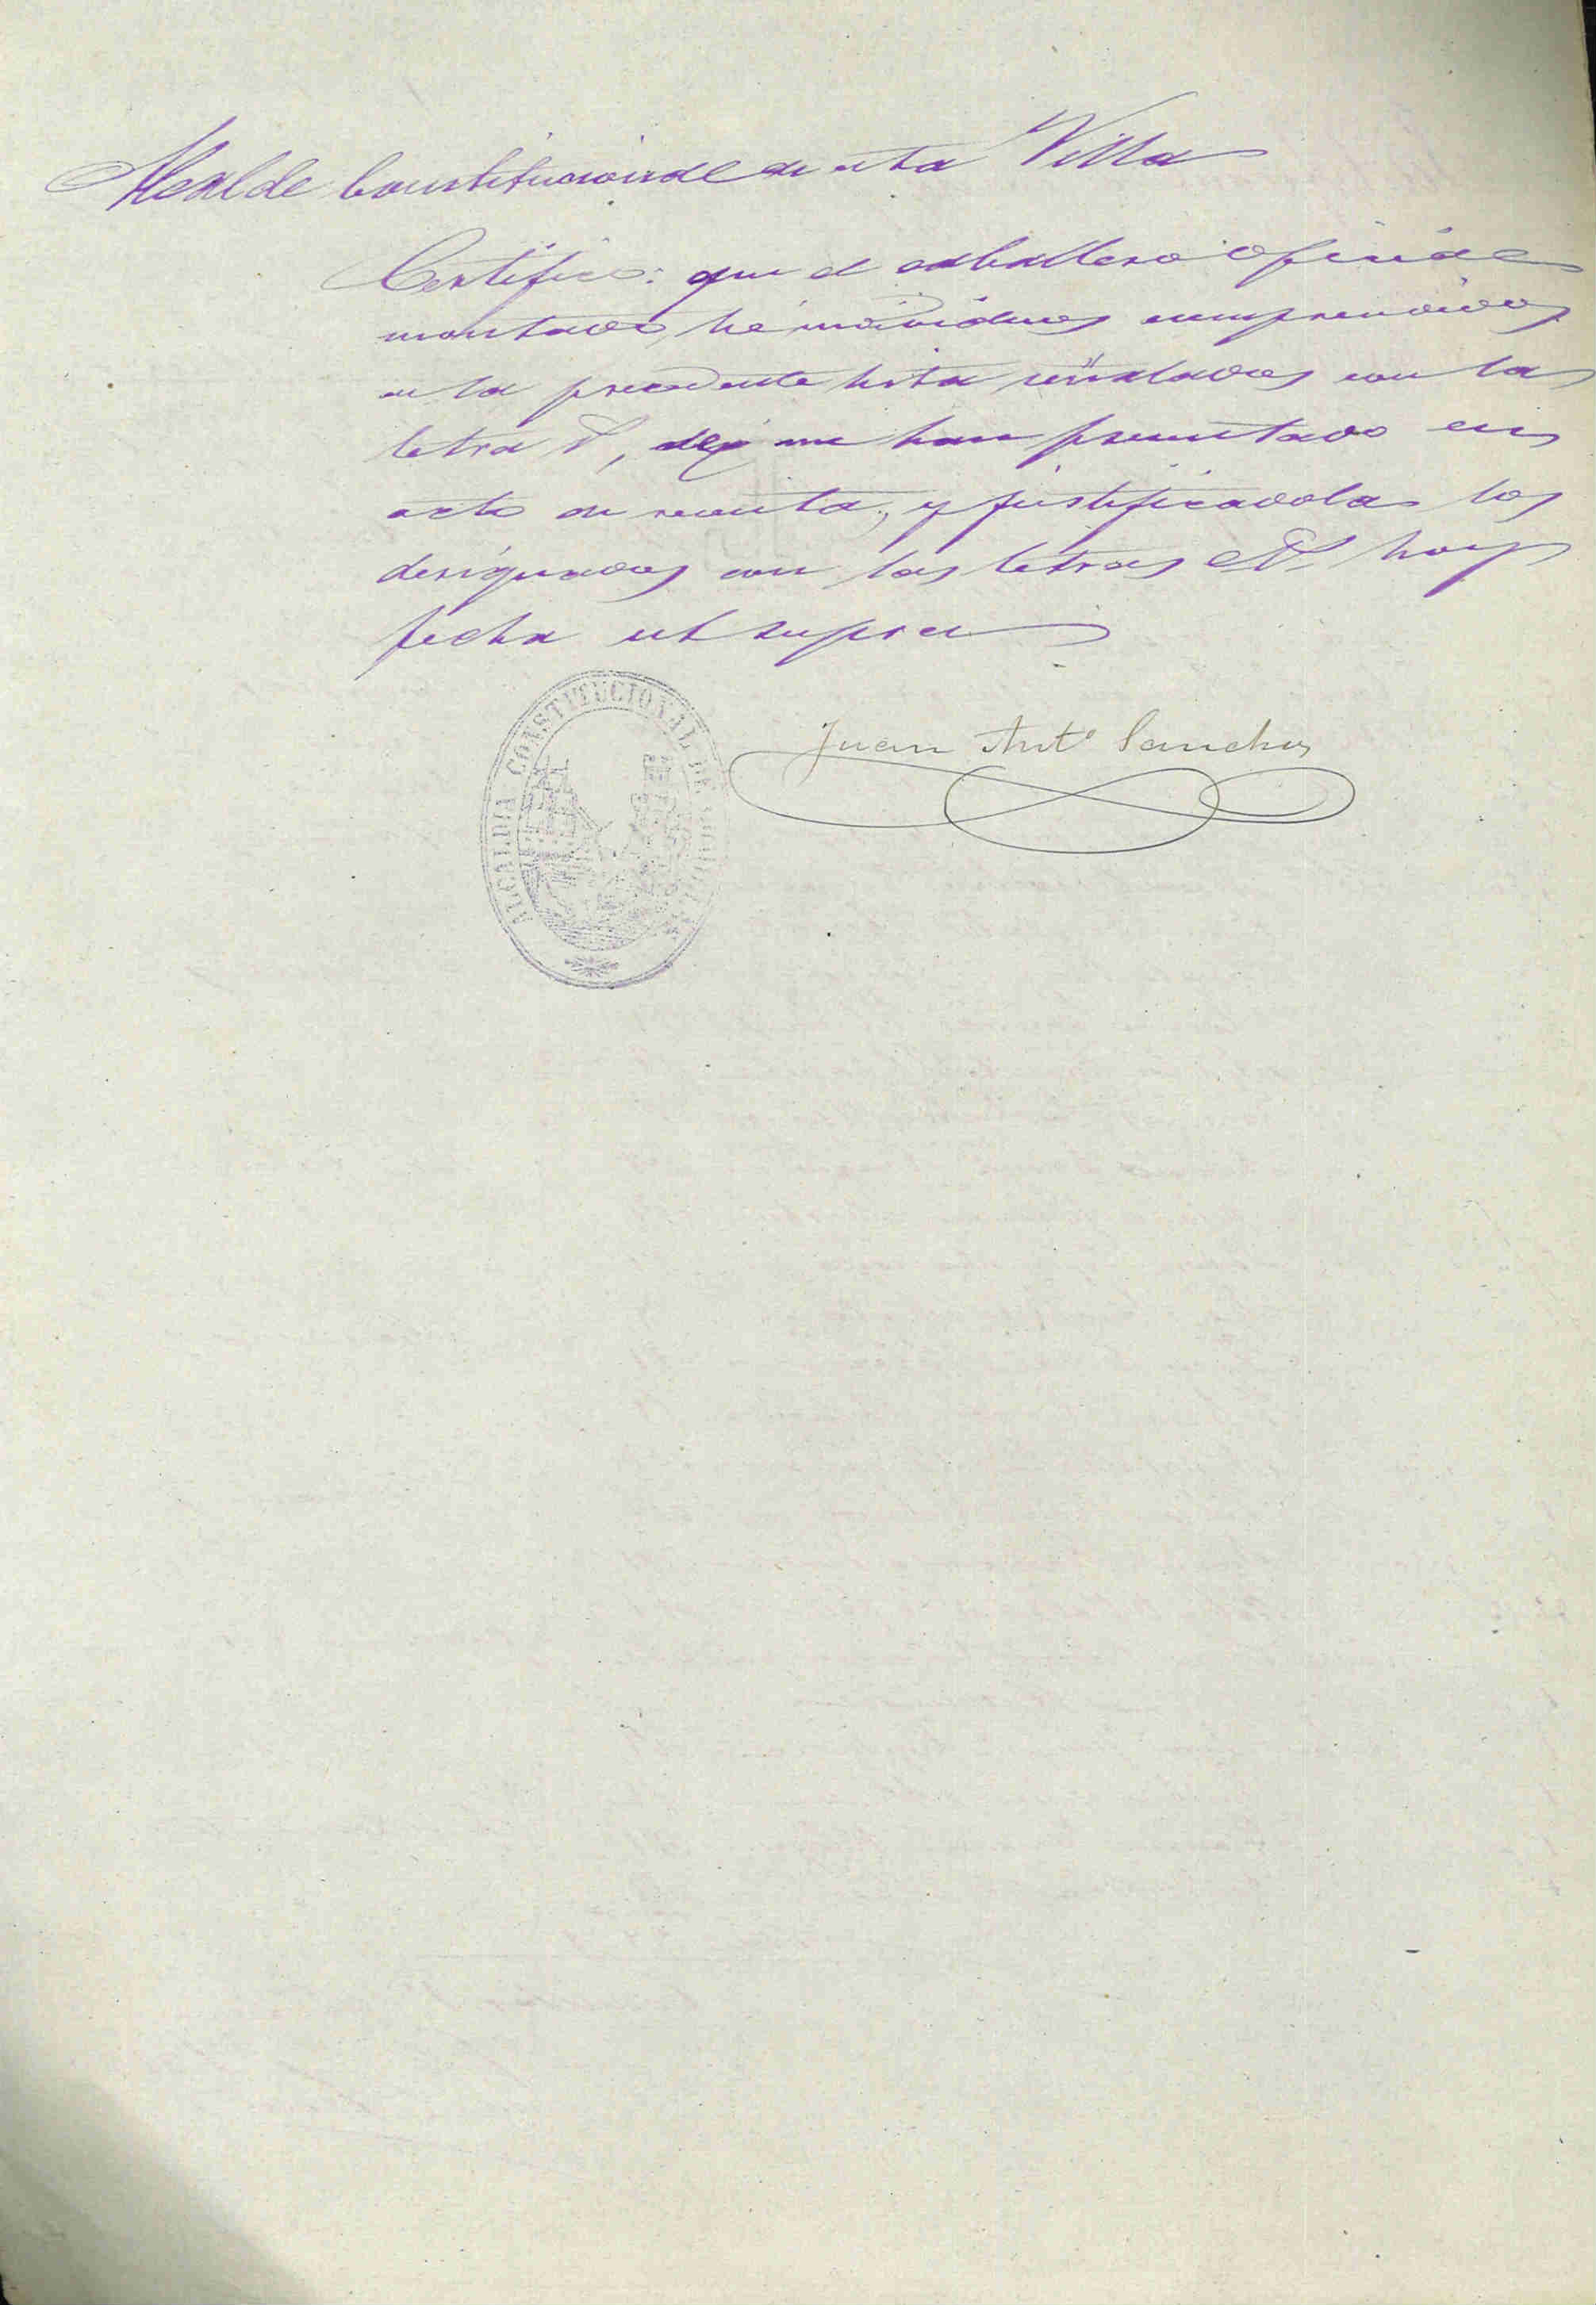 Alcalde Constitucional de esta Villa
Certifico: que el caballero oficial
montado, hé individuos comprendidos
en la precedente lista señalados con la
letra P, se me han presentado en
acto de revista, y justificadola los
designados con las letras hoy
fecha ut supra
Juan Antº Sanchez
ALCALDIA CONSTITUCIONAL DE